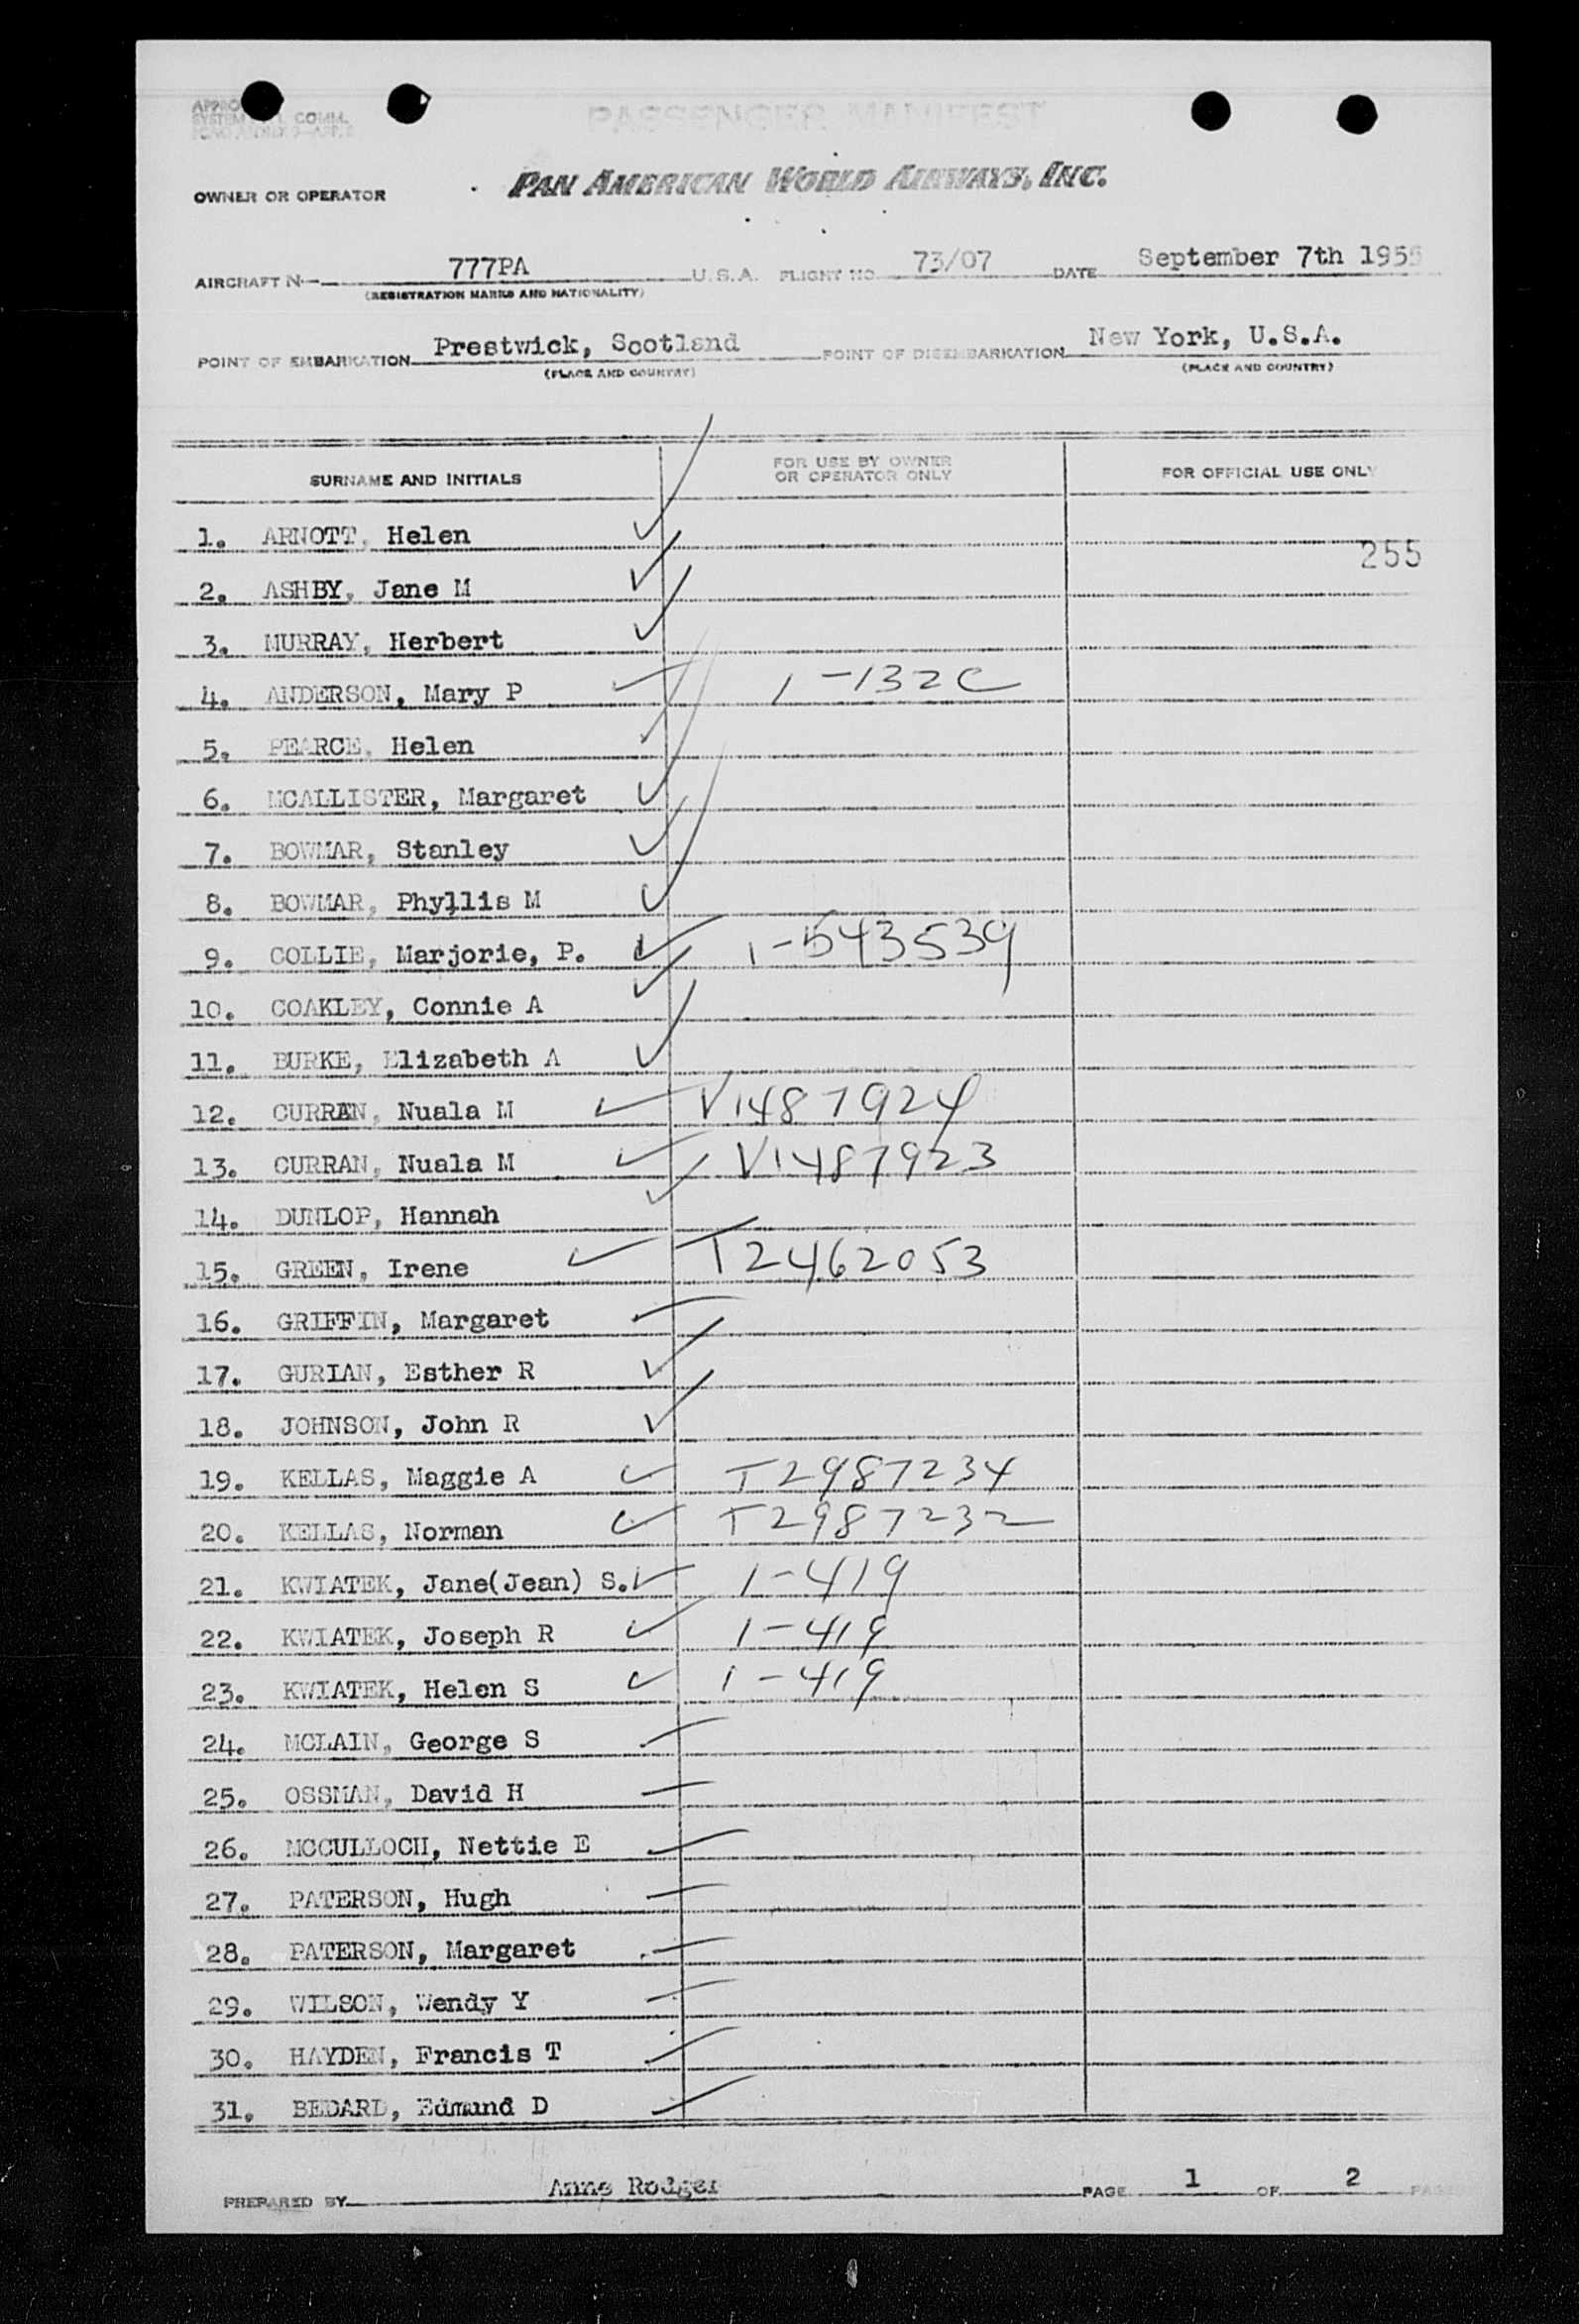 PASSENGER MANIFEST
COMM.
PAN AMERICAN WORLD AIRWAYS, INC.
OWNER OR OPERATOR
AIRCRAFT N 777PA U.S.A. FLIGHT NO 73/07 DATE September 7th 1955
(REGISTRATION MARKS AND NATIONALITY)
POINT OF EMBARKATION Prestwick, Scotland POINT OF DISEMBARKATION New York, U.S.A.
(PLACE AND COUNTRY) (PLACE AND COUNTRY)
SURNAME AND INITIALS FOR USE BY OWNER OR OPERATOR ONLY FOR OFFICIAL USE ONLY
1. ARNOTT, Helen
255
2. ASHBY, Jane M
3. MURRAY, Herbert
4. ANDERSON, Mary P 1-132C
5. PEARCE, Helen
6. MCALLISTER, Margaret
7. BOWMAR, Stanley
8. BOWMAR, Phyllis M
9. COLLIE, Marjorie, P. 1-543539
10. COAKLEY, Connie A
11. BURKE, Elizabeth A
12. CURRAN, Nuala M V1487924
13. CURRAN, Nuala M V1487923
14. DUNLOP, Hannah
15. GREEN, Irene T2462053
16. GRIFFIN, Margaret
17. GURIAN, Esther R
18. JOHNSON, John R
19. KELLAS, Maggie A T2987234
20. KELLAS, Norman T2987232
21. KWIATEK, Jane(Jean) S. 1-419
22. KWIATEK, Joseph R 1-419
23. KWIATEK, Helen S 1-419
24. MCLAIN, George S
25. OSSMAN, David H
26. MCCULLOCH, Nettie E
27. PATERSON, Hugh
28. PATERSON, Margaret
29. WILSON, Wendy Y
30. HAYDEN, Francis T
31. BEDARD, Edmund D
PREPARED BY Anne Rodger PAGE 1 OF 2 PAGES